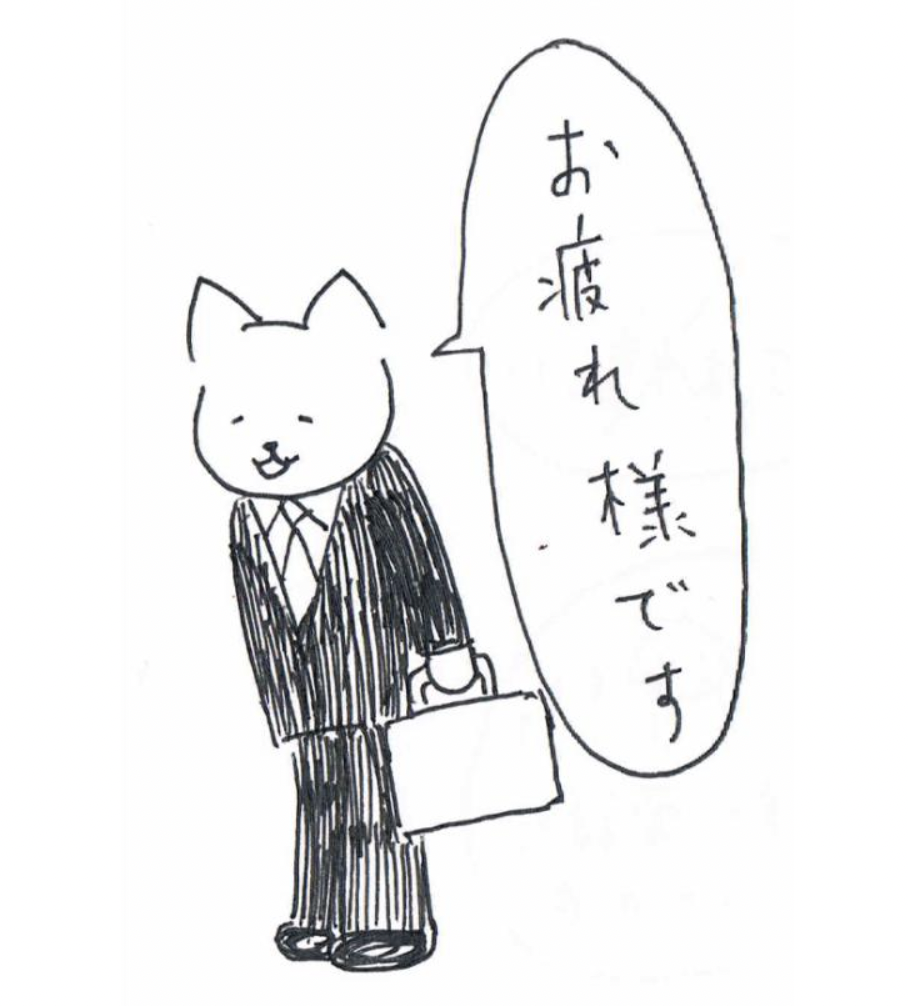 お疲れ様です